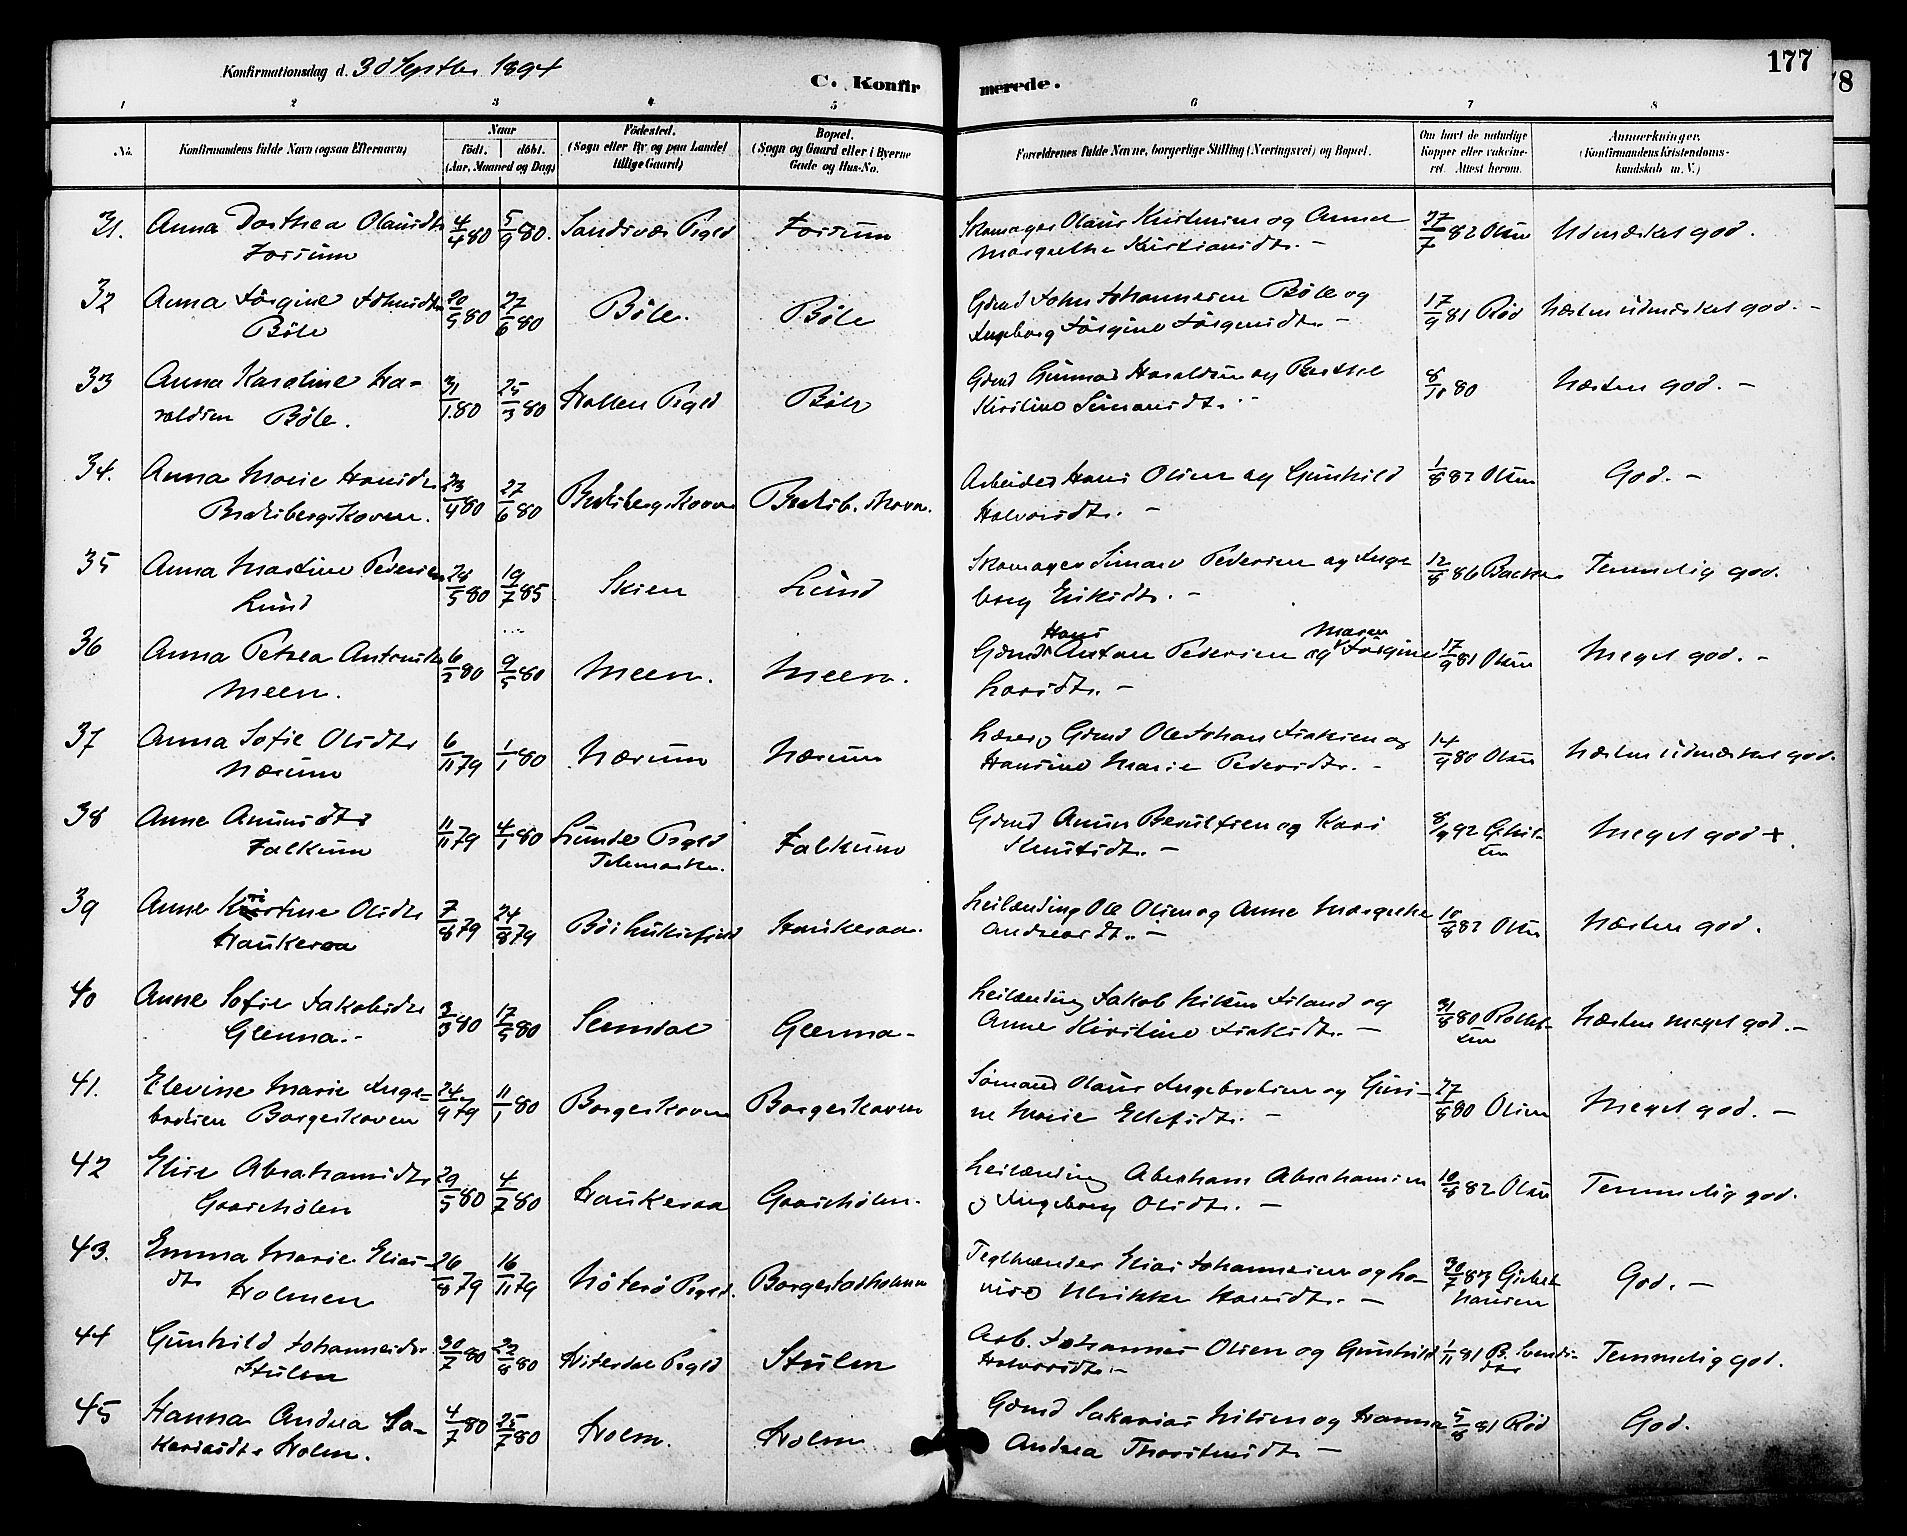 177
78
Konfirmationsdag d. 30 Septbr 1894
C. Konfir merede.
1 2 3 4 5 6 7 8
No. Konfirmandens fulde Navn (ogsaa Efternavn) Naar Födt. döbt. (Aar, Maaned og Dag) Födested. (Sogn eller By og paa Landet tillige Gaard) Bopæl. (Sogn og Gaard eller i Byerne Gade og Hus-No. Forældrenes fulde Navne, borgerlige Stilling (Næringsvei) og Bopæl. Om havt de naturlige Kopper eller vakcineret. Attest herom. Anmærkninger. (Konfirmandens Kristendomskundskab m. V.)
31. Anna Dorthea Olausdtr 4/4 80 5/9 80. Sandsvær Pgld Fossum Skomager Olaus Kristensen og Anne 27/7 82 Olsen Udmærket god.
Fossum Margrethe Kristiansdtr. -
32 Anna Jörgine Johnsdtr 20/5 80 27/6 80 Böle. Böle Gdmd John Johannesen Böle og 17/9 81 Röd Næsten udmærket god. -
Böle Ingeborg Jörgine Jörgensdtr. -
33 Anna Karoline Ha- 31/1 80 25/3 80 Hollen Pgld Böle Gdmd Gunnar Haraldsen og Berthe 8/10 80 Næsten god. -
raldsen Böle. Kirstine Simonsdtr. -
34. Anna Marie Hansdtr 23/4 80 27/6 80 Bratsbergskoven Bratsb. skovn. Arbeider Hans Olsen og Gunhild 1/8 82 Olsen God. -
Bratsbergskoven. Halvorsdtr. -
35 Anna Martine Pedersen 28/5 80 19/7 85 Skien Lund Skomager Simon Pedersen og Inge 12/8 86 Backer Temmelig god.
Lund borg Eriksdtr. -
36 Anna Petrea Antonsdtr 6/3 80 9/5 80 Meen. Meen. Gdmd Hans Anton Pedersen og Maren Jörgine 17/9 81 Olsen Meget god. -
Meen. Larsdtr. -
37 Anna Sofie Olsdtr 6/11 79 1/1 80 Nærum Nærum Læser, Gdmd Ole Johan Isaksen og 14/9 80 Olsen Næsten udmærket god.
Nærum Hansine Marie Pedersdtr. -
38 Anne Amundsdtr 11/11 79 4/1 80 Lunde Pgld Telemarken. Falkum Gdmd Amund Berulfsen og Kari 8/9 92 Meget god +.
Falkum Knutsdtr. -
39 Anne Kirstine Olsdtr 7/8 79 24/8 79 Haukeraa. Leilænding Ole Olsen og Anne Margrethe 10/8 82 Olsen Næsten god.
Haukeraa Andreasdtr. -
40 Anne Sofie Jakobsdtr 3/3 80 17/5 80 Slemdal Glenna - Leilænding Jakob Nilsen Island og 31/8 80 Næsten meget god. -
Glenna. - Anne Kirstine Isaksdtr. -
41. Elevine Marie Inge- 24/9 79 11/1 80 Borgeskoven Borgeskoven Sömand Olaus Ingebretsen og Gusi- 27/8 80 Olsen Meget god. -
bretsen Borgeskoven ne Marie Ellefsdtr. -
42 Elise Abrahamsdtr 29/5 80 4/7 80 Haukeraa Gaasehölen. Leilænding Abraham Abrahamsen 10/8 82 Olsen Temmelig god.
Gaasehölen og Ingeborg Olsdtr. -
43. Emma Marie Elias- 26/8 79 16/11 79 Nöterö Pgld. Borgestadholmen Teglbrænder Elias Johannesen og Lo- 30/7 83 God. -
dtr Holmen vise Ulrikke Hansdtr. -
44 Gunhild Johannesdtr 30/7 80 22/8 80 Hiterdal Pgld Stulen Arb. Johannes Olsen og Gunhild 1/11 81 B. Svends- Temmelig god.
Stulen Halvorsdtr. - dtr
45 Hanna Andrea Sa- 4/7 80 25/7 80 Holm. Holm Gdmd Sakarias Nilsen og Hanna 5/8 81 Röd God.
kariasdtr Holm. Andrea Thorstensdtr -